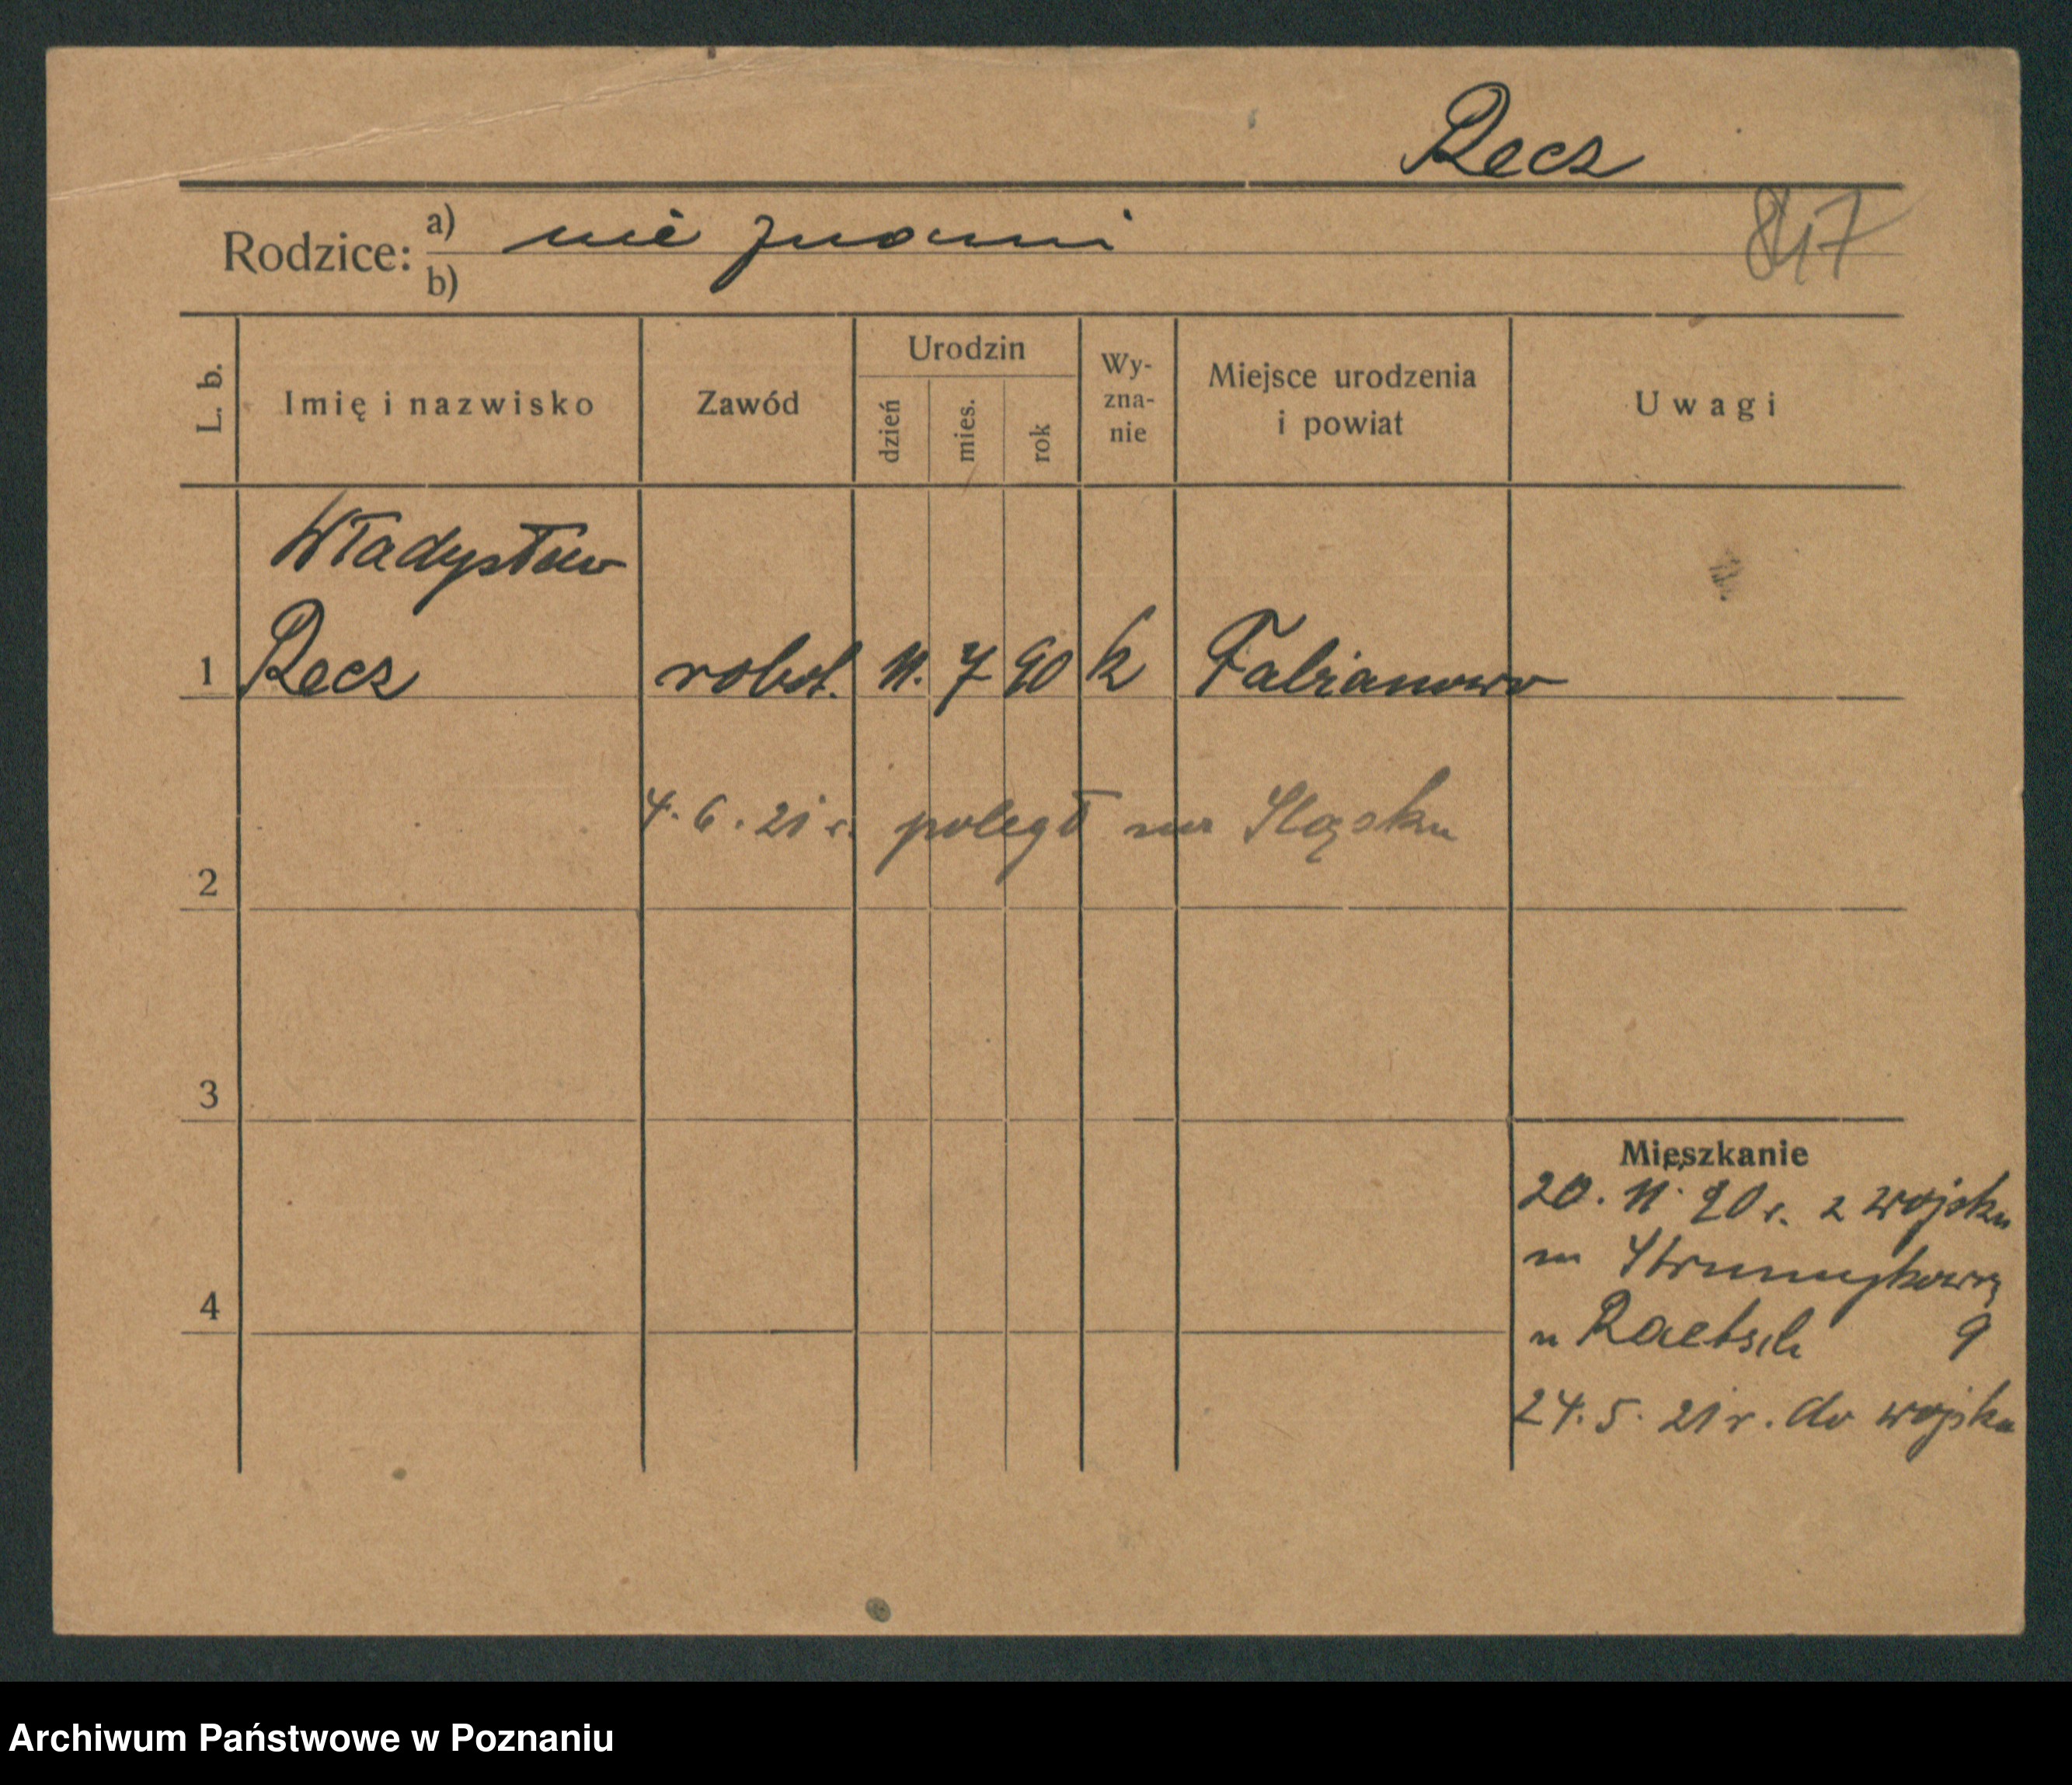 Recz
847
Rodzice: a) nie znani
b)
L. b. Imię i nazwisko Zawód Urodzin dzień mies. rok Wy-zna-nie Miejsce urodzenia i powiat Uwagi
Władysław
1 Recz robot. 11. 7 90 k Fabianowo
4. 6. 21 r. poległ na Śląsku
2
3
Mieszkanie
20. 11. 20 r. z wojska
na Strumykową
4
u Raetsch 9
24. 5. 21 r. do wojska
Archiwum Państwowe w Poznaniu